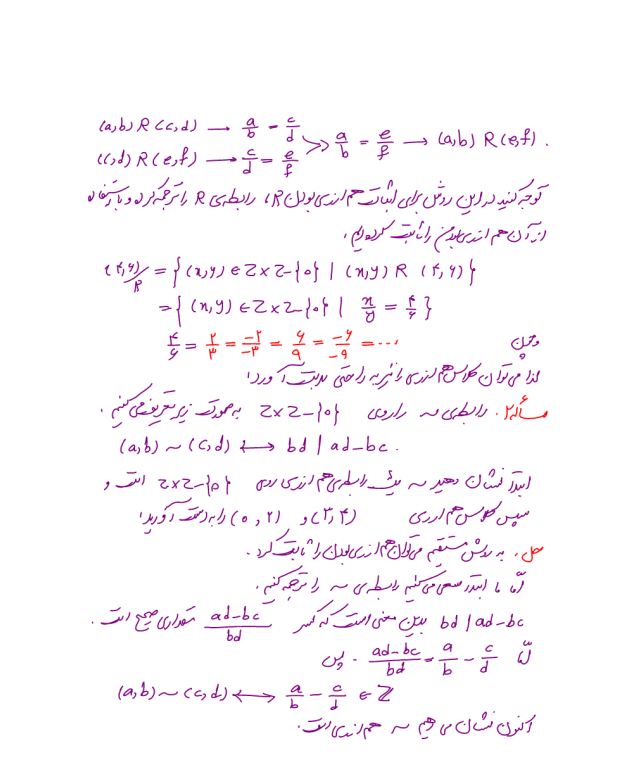 (a,b) R (c,d) → a/b = c/d
(c,d) R (e,f) → c/d = e/f ⇒ a/b = e/f → (a,b) R (e,f).
توجه کنید در این روش برای اثبات هم ارزی بودن R، رابطه‌ی R را ترجمه کرده و با استفاده
از آن هم ارزی بودن را ثابت کرده‌ایم.
(۴,۶)/R = {(x,y) ∈ Z×Z-{0} | (x,y) R (۴,۶)}
= {(x,y) ∈ Z×Z-{0} | x/y = ۴/۶}
و چون ۴/۶ = ۲/۳ = -۲/-۳ = ۶/۹ = -۶/-۹ = ...
لذا می‌توان کلاس هم ارزی را نیز به راحتی بدست آورد.
مسأله ۲. رابطه‌ی ~ را روی Z×Z-{0} به صورت زیر تعریف می‌کنیم.
(a,b) ~ (c,d) ↔ bd | ad-bc.
ابتدا نشان دهید ~ یک رابطه‌ی هم ارزی روی Z×Z-{0} است و
سپس کلاس هم ارزی (۳,۴) و (۰,۲) را به دست آورید.
حل. به روش مستقیم می‌توان هم ارزی بودن را ثابت کرد.
اما ما ابتدا سعی می‌کنیم رابطه‌ی ~ را ترجمه کنیم.
bd | ad-bc بدین معنی است که کسر (ad-bc)/bd مقداری صحیح است.
اما (ad-bc)/bd = a/b - c/d. پس
(a,b) ~ (c,d) ↔ a/b - c/d ∈ Z
اکنون نشان می‌دهیم ~ هم ارزی است.